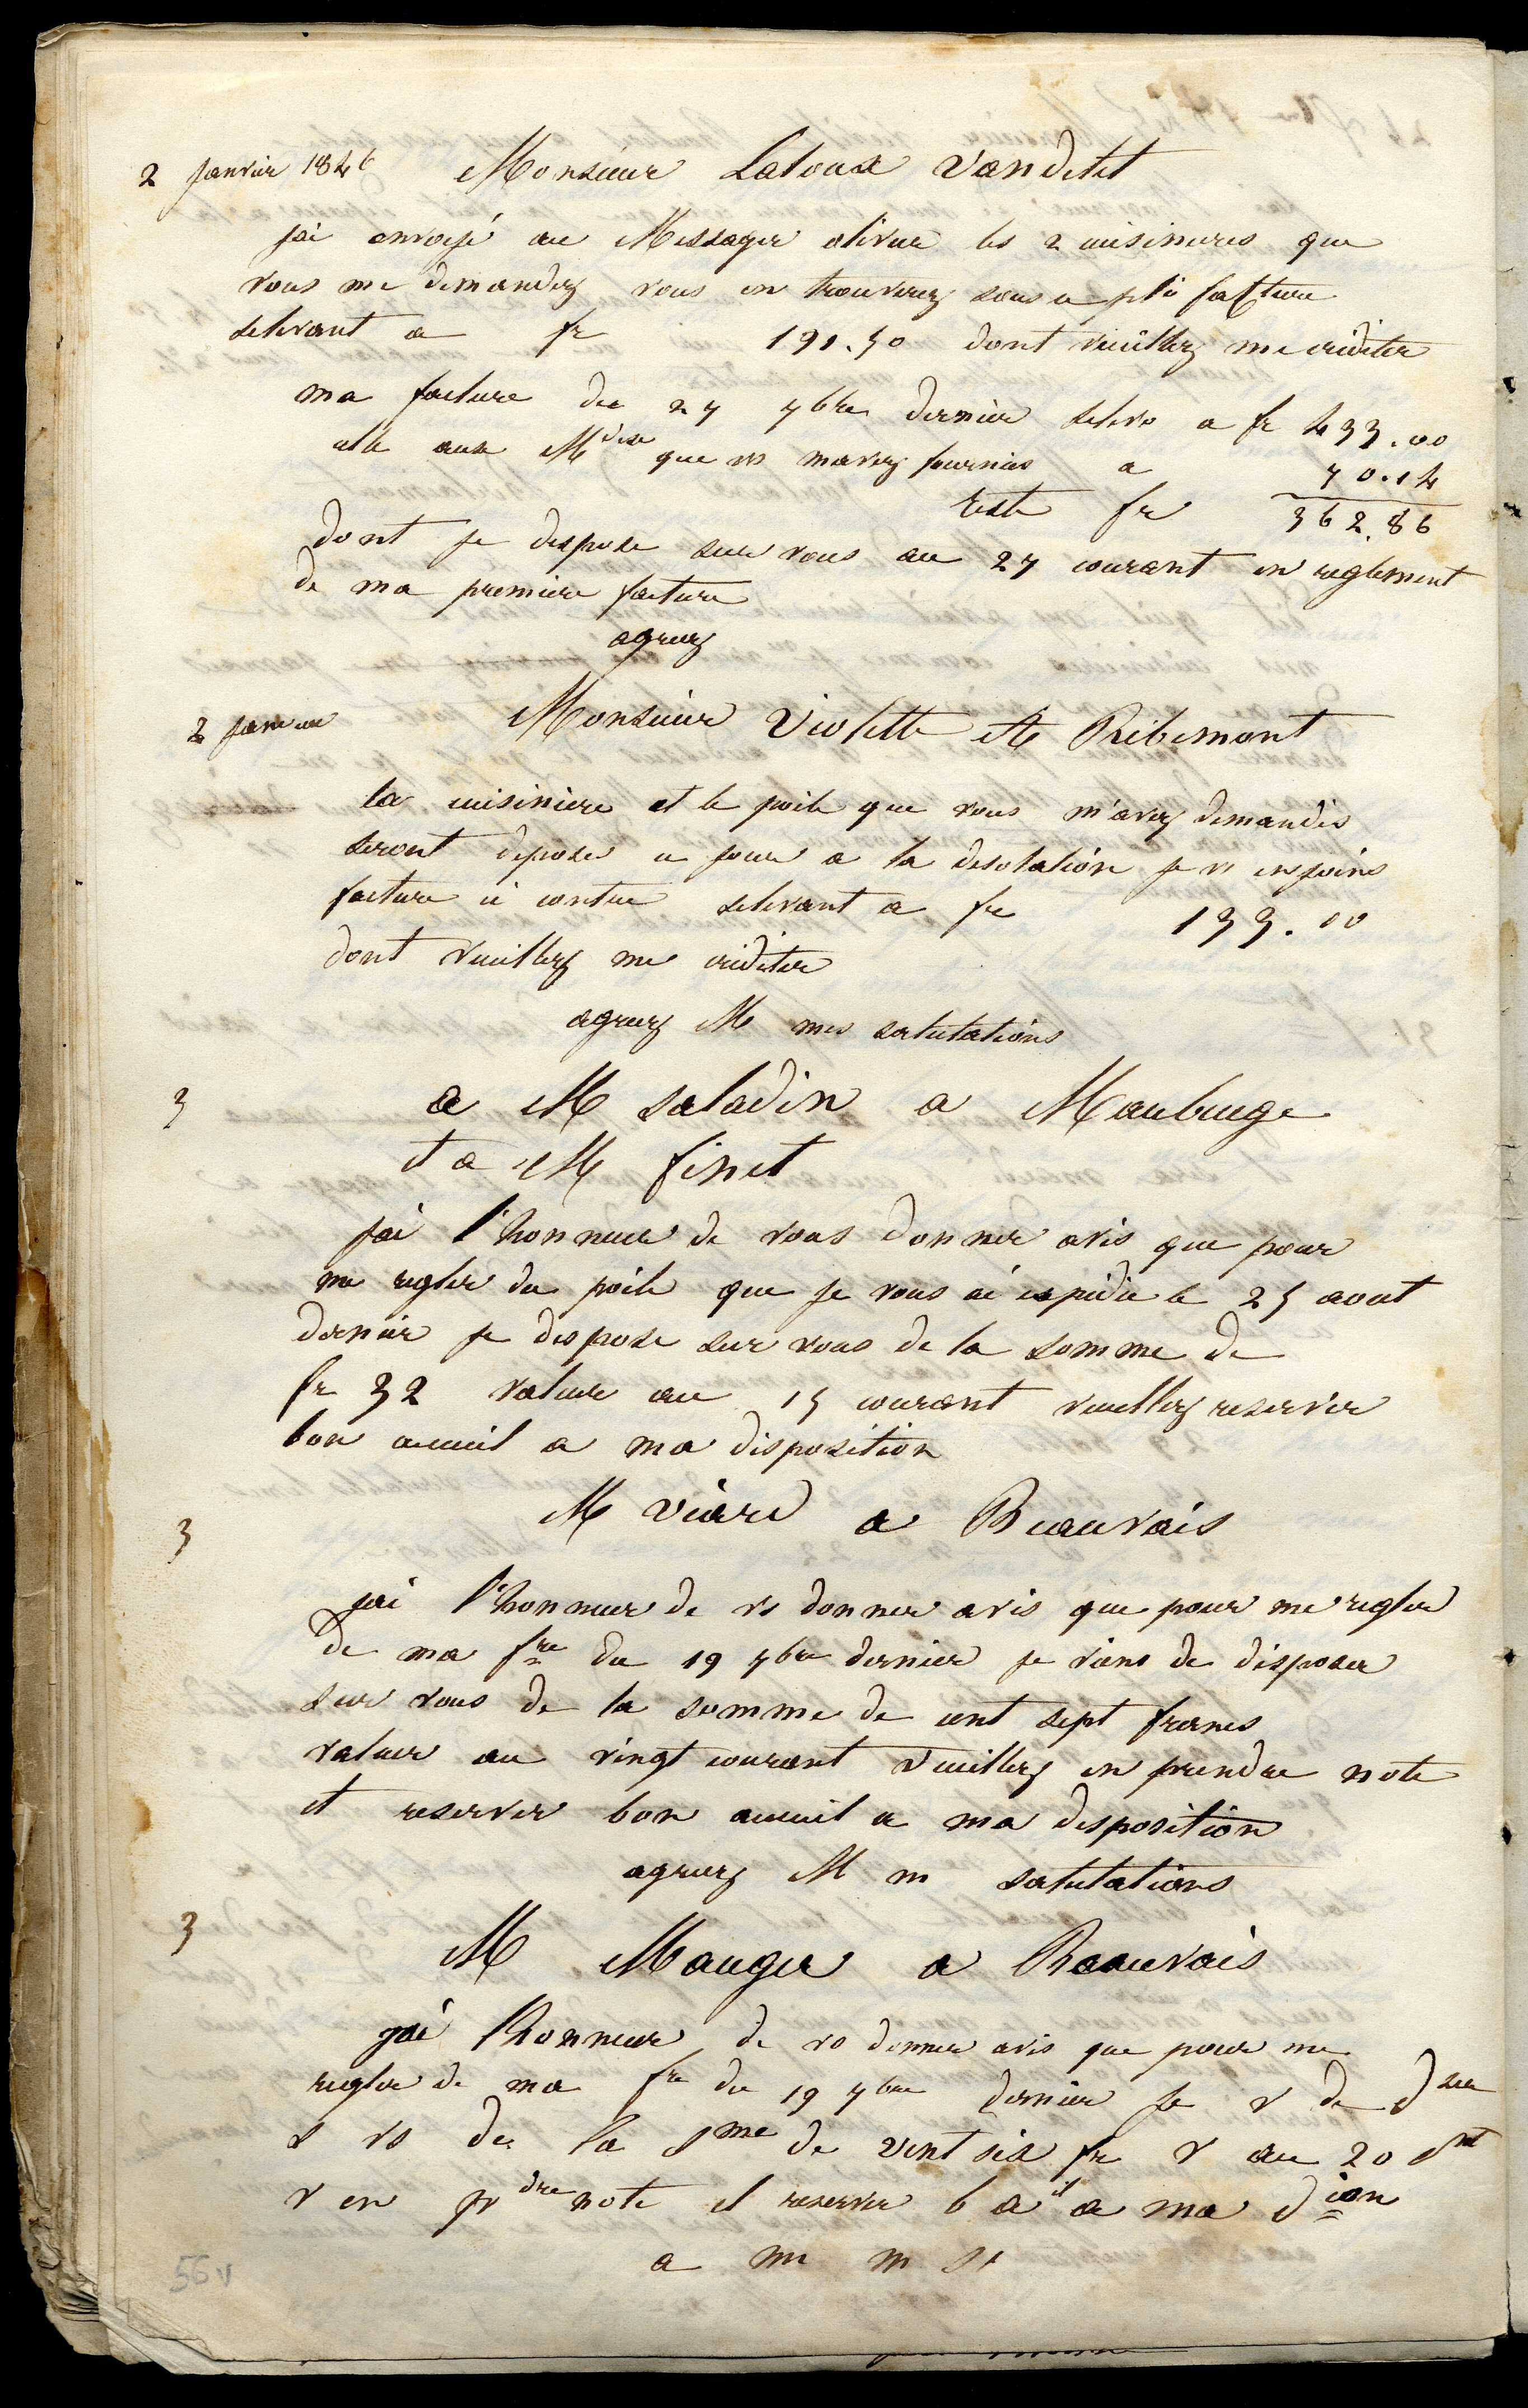 2 janvier 1846 Monsieur Latoux Vandetet
jai envoyé au Messager olivue les 2 cuisinieres que
vous me demandez vous en trouverez sous ce pli facture
selevant a fr 191.50 dont veuillez me crediter
ma facture du 27 7bre dernier seleve a fr 433.00
celle aux Mdises que vs mavez fournies a 70.14
reste fr 362.86
dont je dispose sur vous au 27 courant en reglement
de ma premiere facture
agreez
2 janvier Monsieur Violette à Ribemont
la cuisiniere et le poile que vous m'avez demandés
seront deposes ce jour a la desolation je vs en joins
facture ci contre selevant a fr 133.00
dont veuillez me crediter
agreez M mes salutations
3 a M saladin a Maubeuge
et a M finet
jai l'honneur de vous donner avis que pour
me regler du poile que je vous ai expidie le 25 aout
dernier je dispose sur vous de la somme de
fr 32 valeur au 15 courant veuillez reserver
bon acceuil a ma disposition
3 M viard a Beauvais
jai l'honneur de vs donner avis que pour me regler
de ma fre du 19 7bre dernier je viens de disposer
sur vous de la somme de cent sept francs
valeur au vingt courant veuillez en prendre note
et reserver bon acceuil a ma disposition
agreez M m salutations
3 M Mauger a Beauvais
jai lhonneur de vs donner avis que pour me
regler de ma fre du 19 7bre dernier je v de dser
s vs de la sme de vent six fr v au 20 Ct
v en prdre note et reserver b ail a ma dion
a m m st
56v